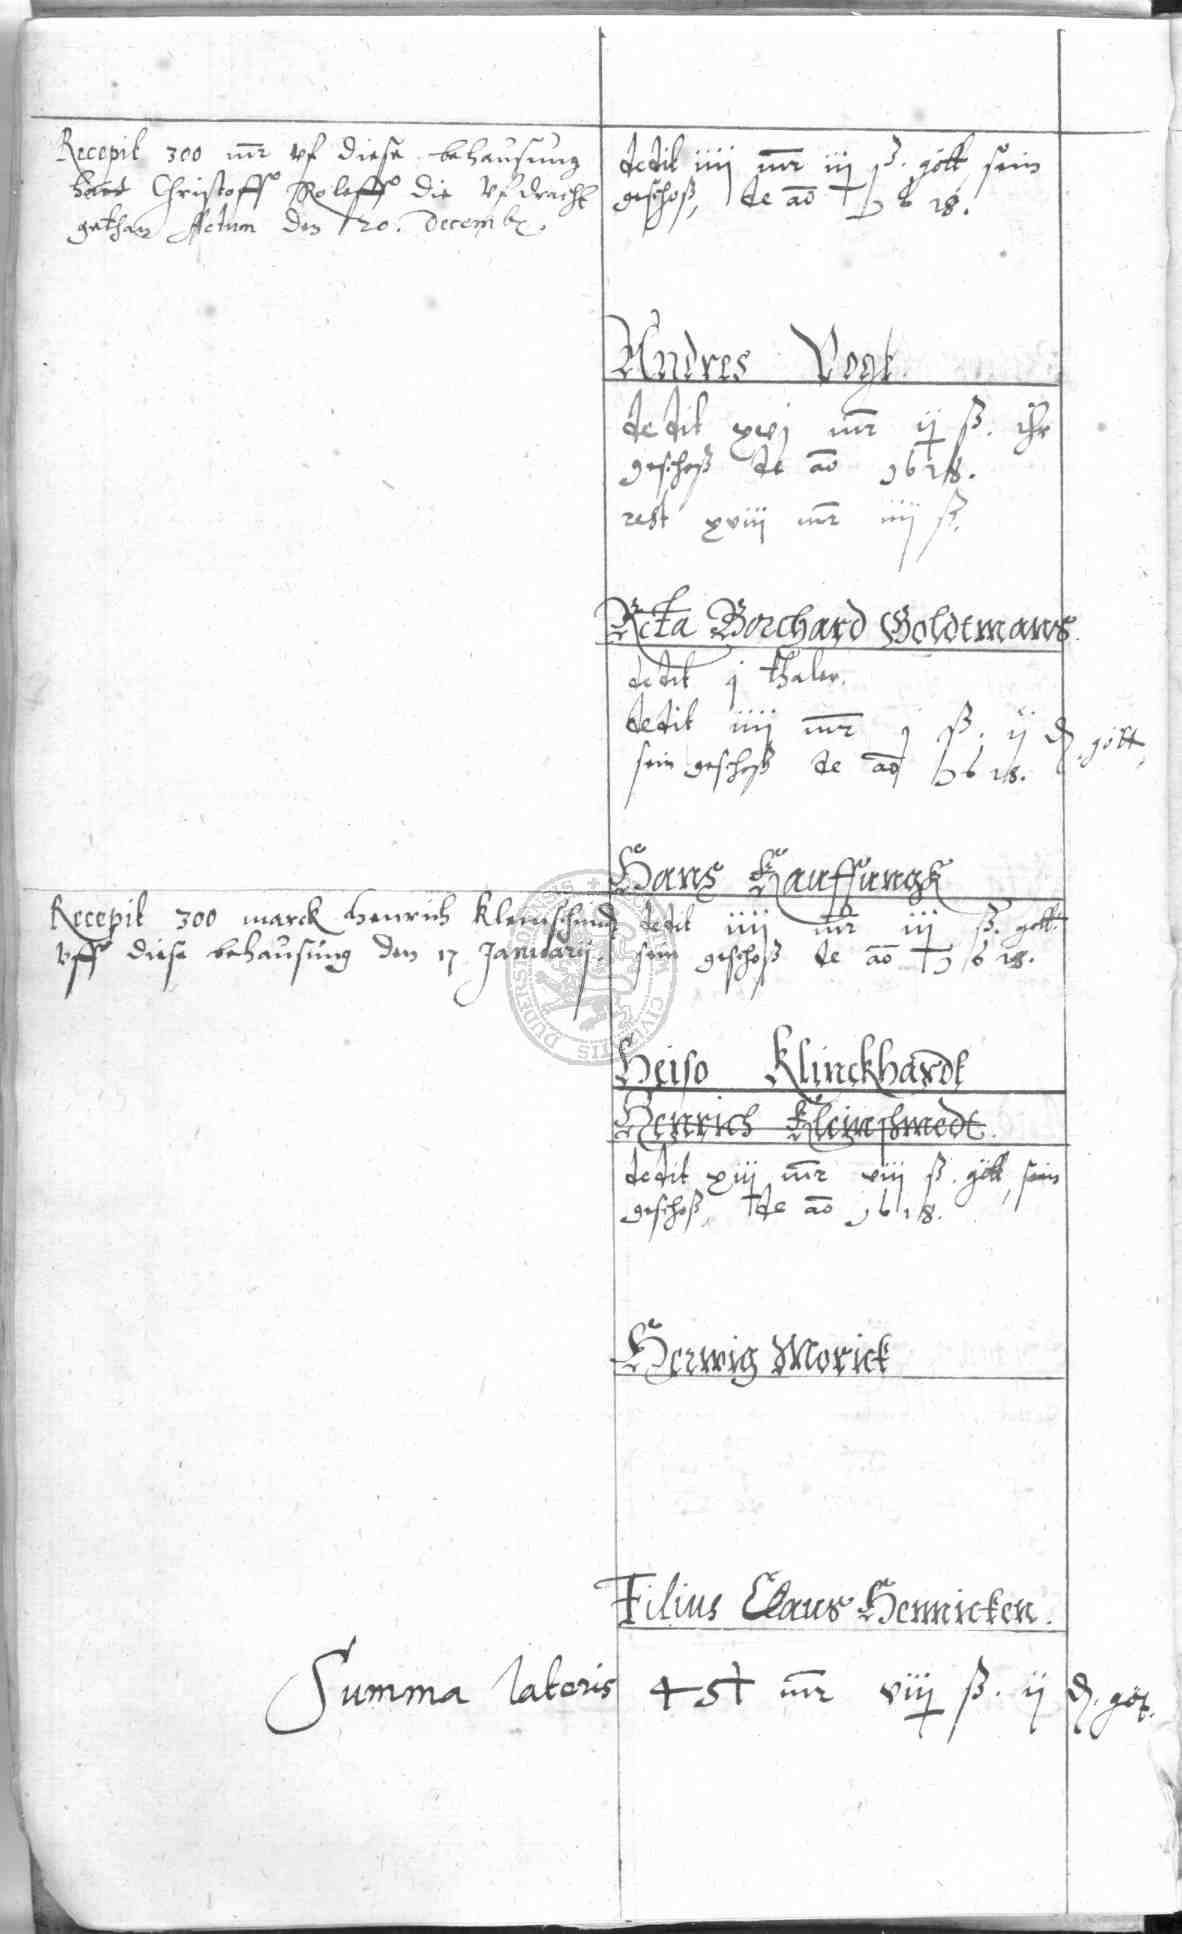 Recepit 300 mr uf diese behausung
hans Christoff Roleffs die ufdracht
gethan Actum den 20. Decemb.
dedit iiij mr iij ß. gött, sein
geschoß, de ao 1618.
Andres Vogt.
dedit xvj mr ij ß. ihr
geschoß de ao 1618.
rest xviii mr iiij ß.
Relicta Borchard Goldtmans.
dedit j thaler.
dedit iiij mr j ß. ij d. gött,
sein geschoß de ao 1618.
Hans Kauffungk
Recepit 300 marck Henrich Kleinschmidt
uff diese behausung den 17 Januarij.
dedit iiij mr iij ß. gött.
sein geschoß de ao 1618.
Heiso Klinckhardt
Henrich Kleinschmedt.
dedit xiij mr viij ß. gött, sein
geschoß, de ao 1618.
Herwig Morick
Filius Claus Hennicken.
Summa lateris 4 mr viij ß. ij d. göt.